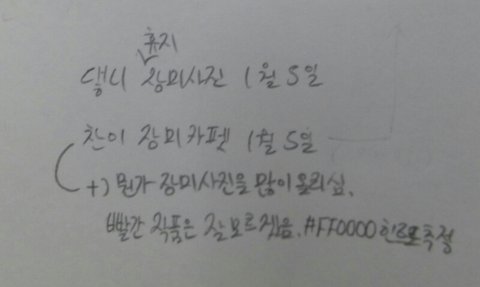 휴지
댕니 장미사진 1월 5일
찬이 장미카펫 1월 5일
+) 뭔가 장미사진을 많이 올리심.
빨간 직품은 잘모르겠음. #FF0000 힌트로 추정